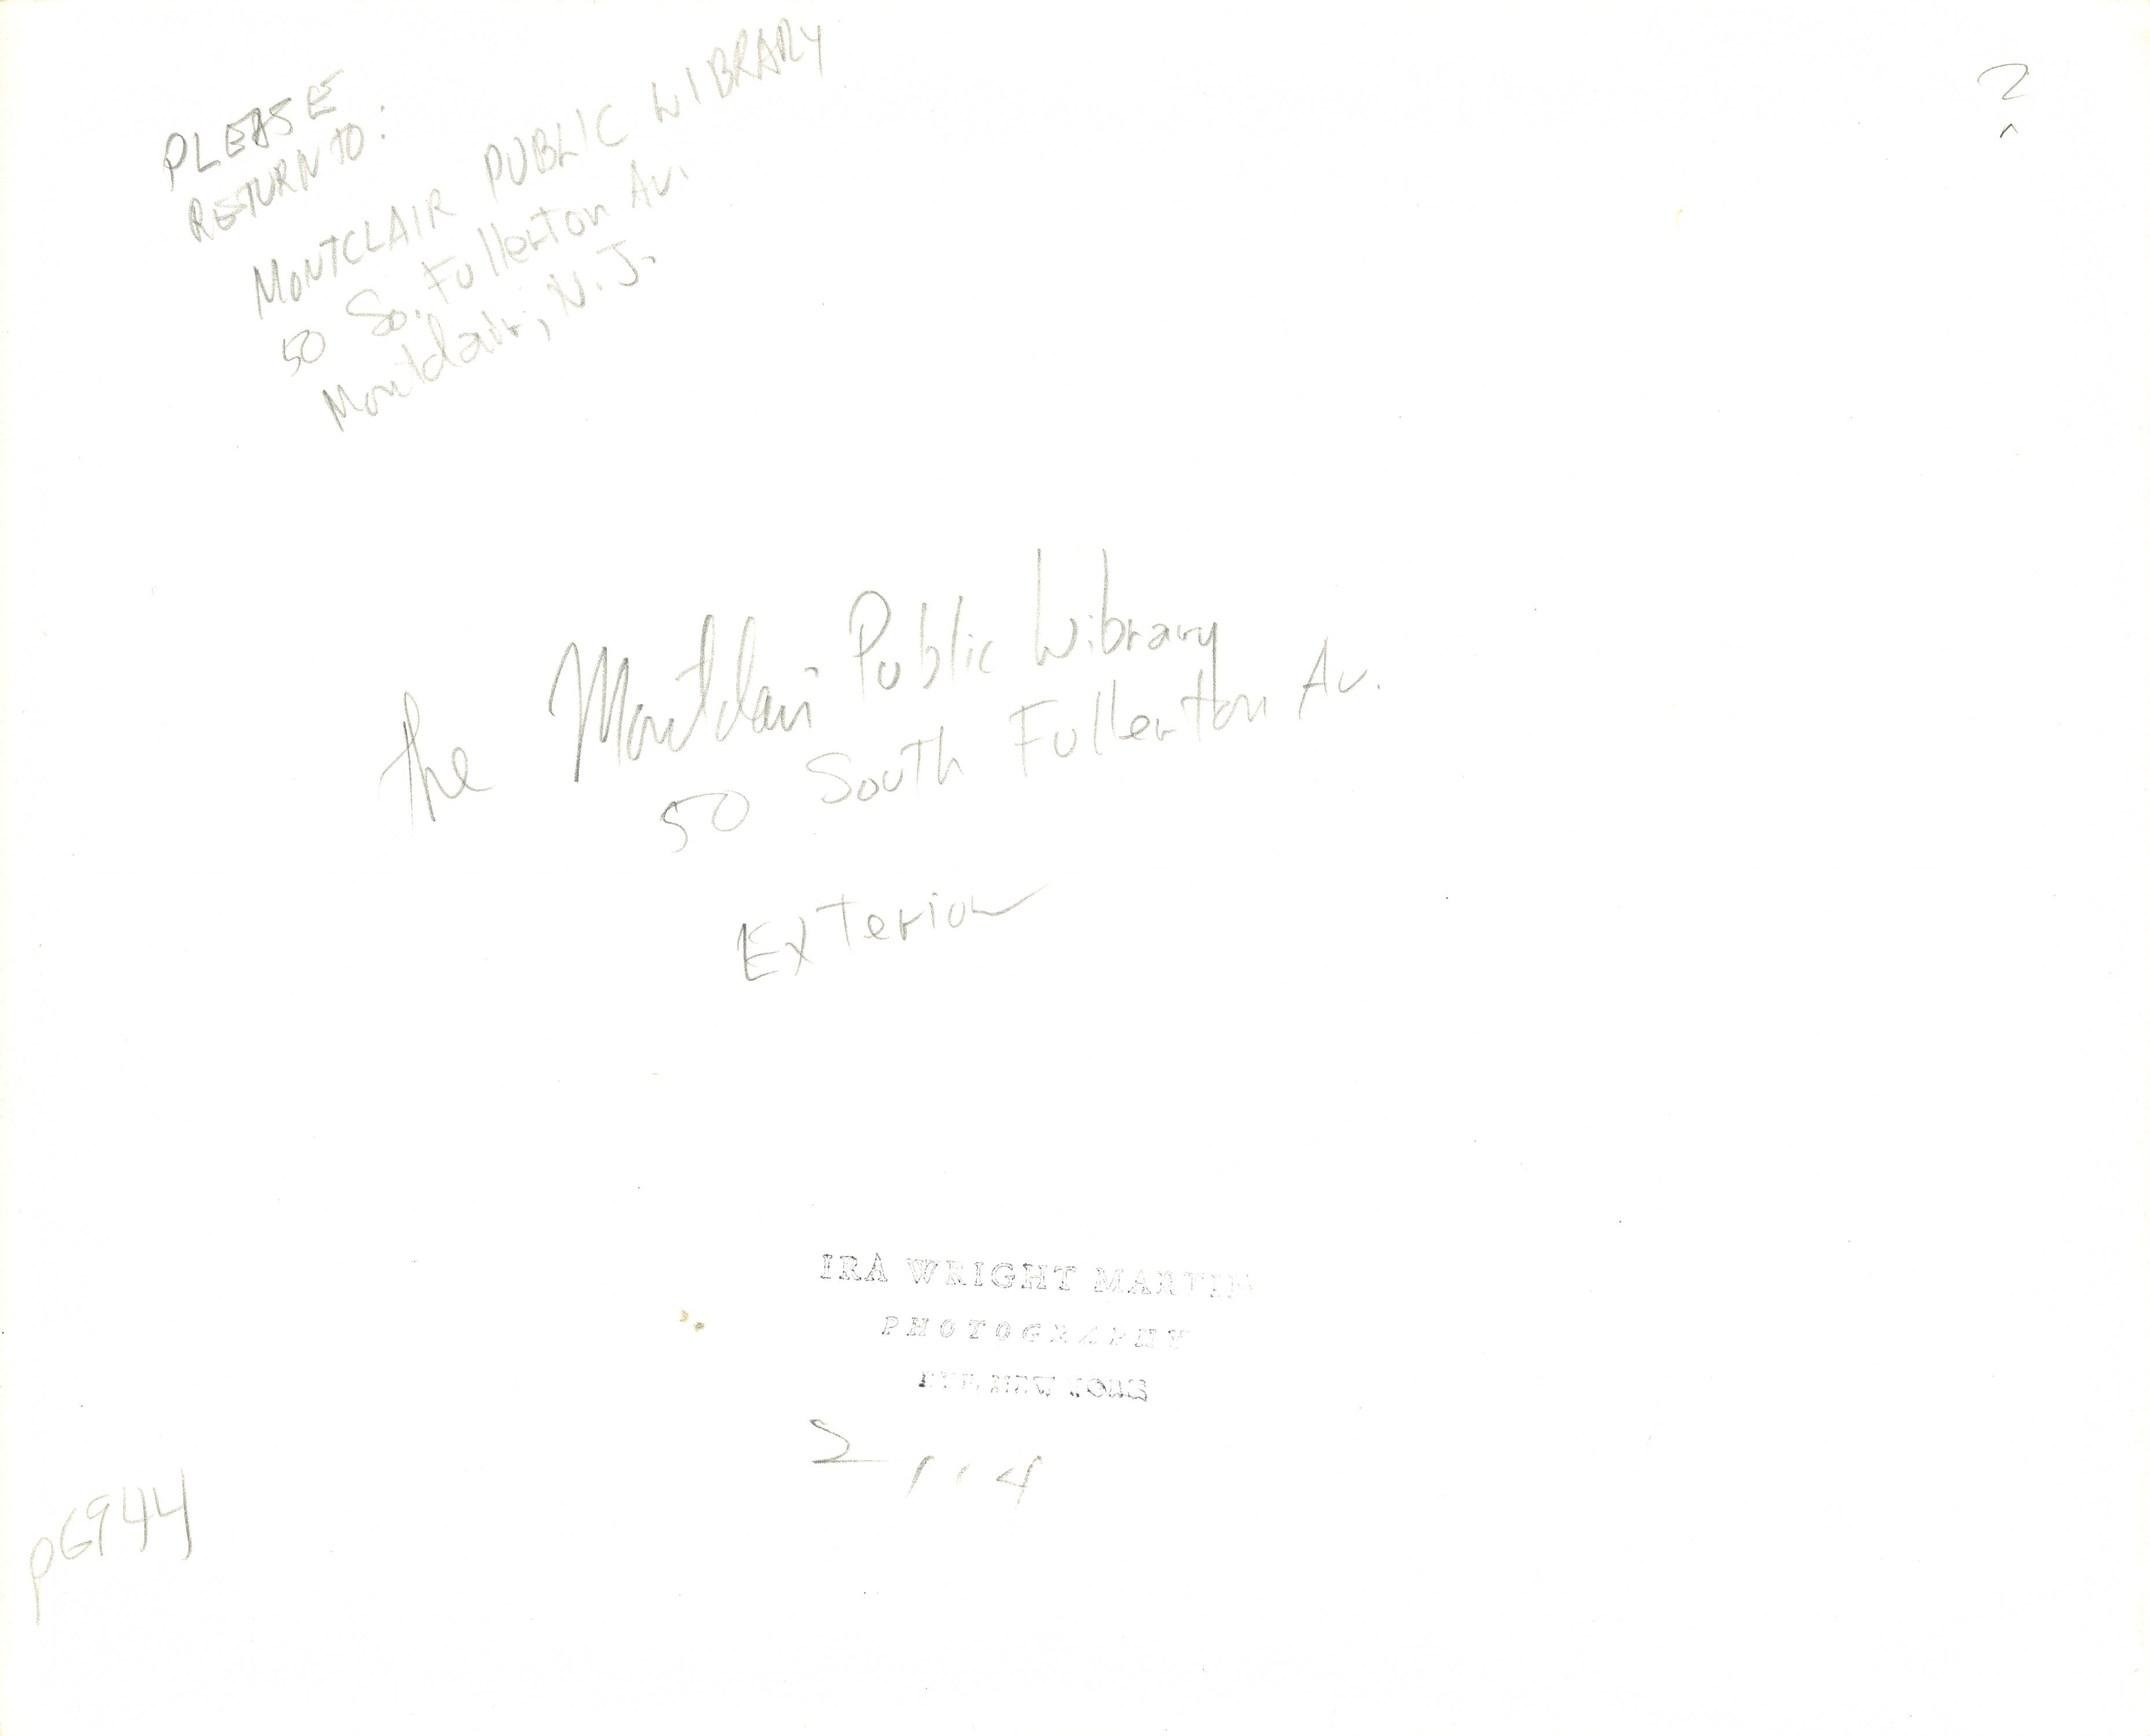 PLEASE
RETURN TO:
MONTCLAIR PUBLIC LIBRARY
50 So. Fullerton Av.
Montclair, N.J.
?
The Montclair Public Library
50 South Fullerton Av.
Exterior
IRA WRIGHT MARTIN
PHOTOGRAPHY
RYE, NEW YORK
p6944